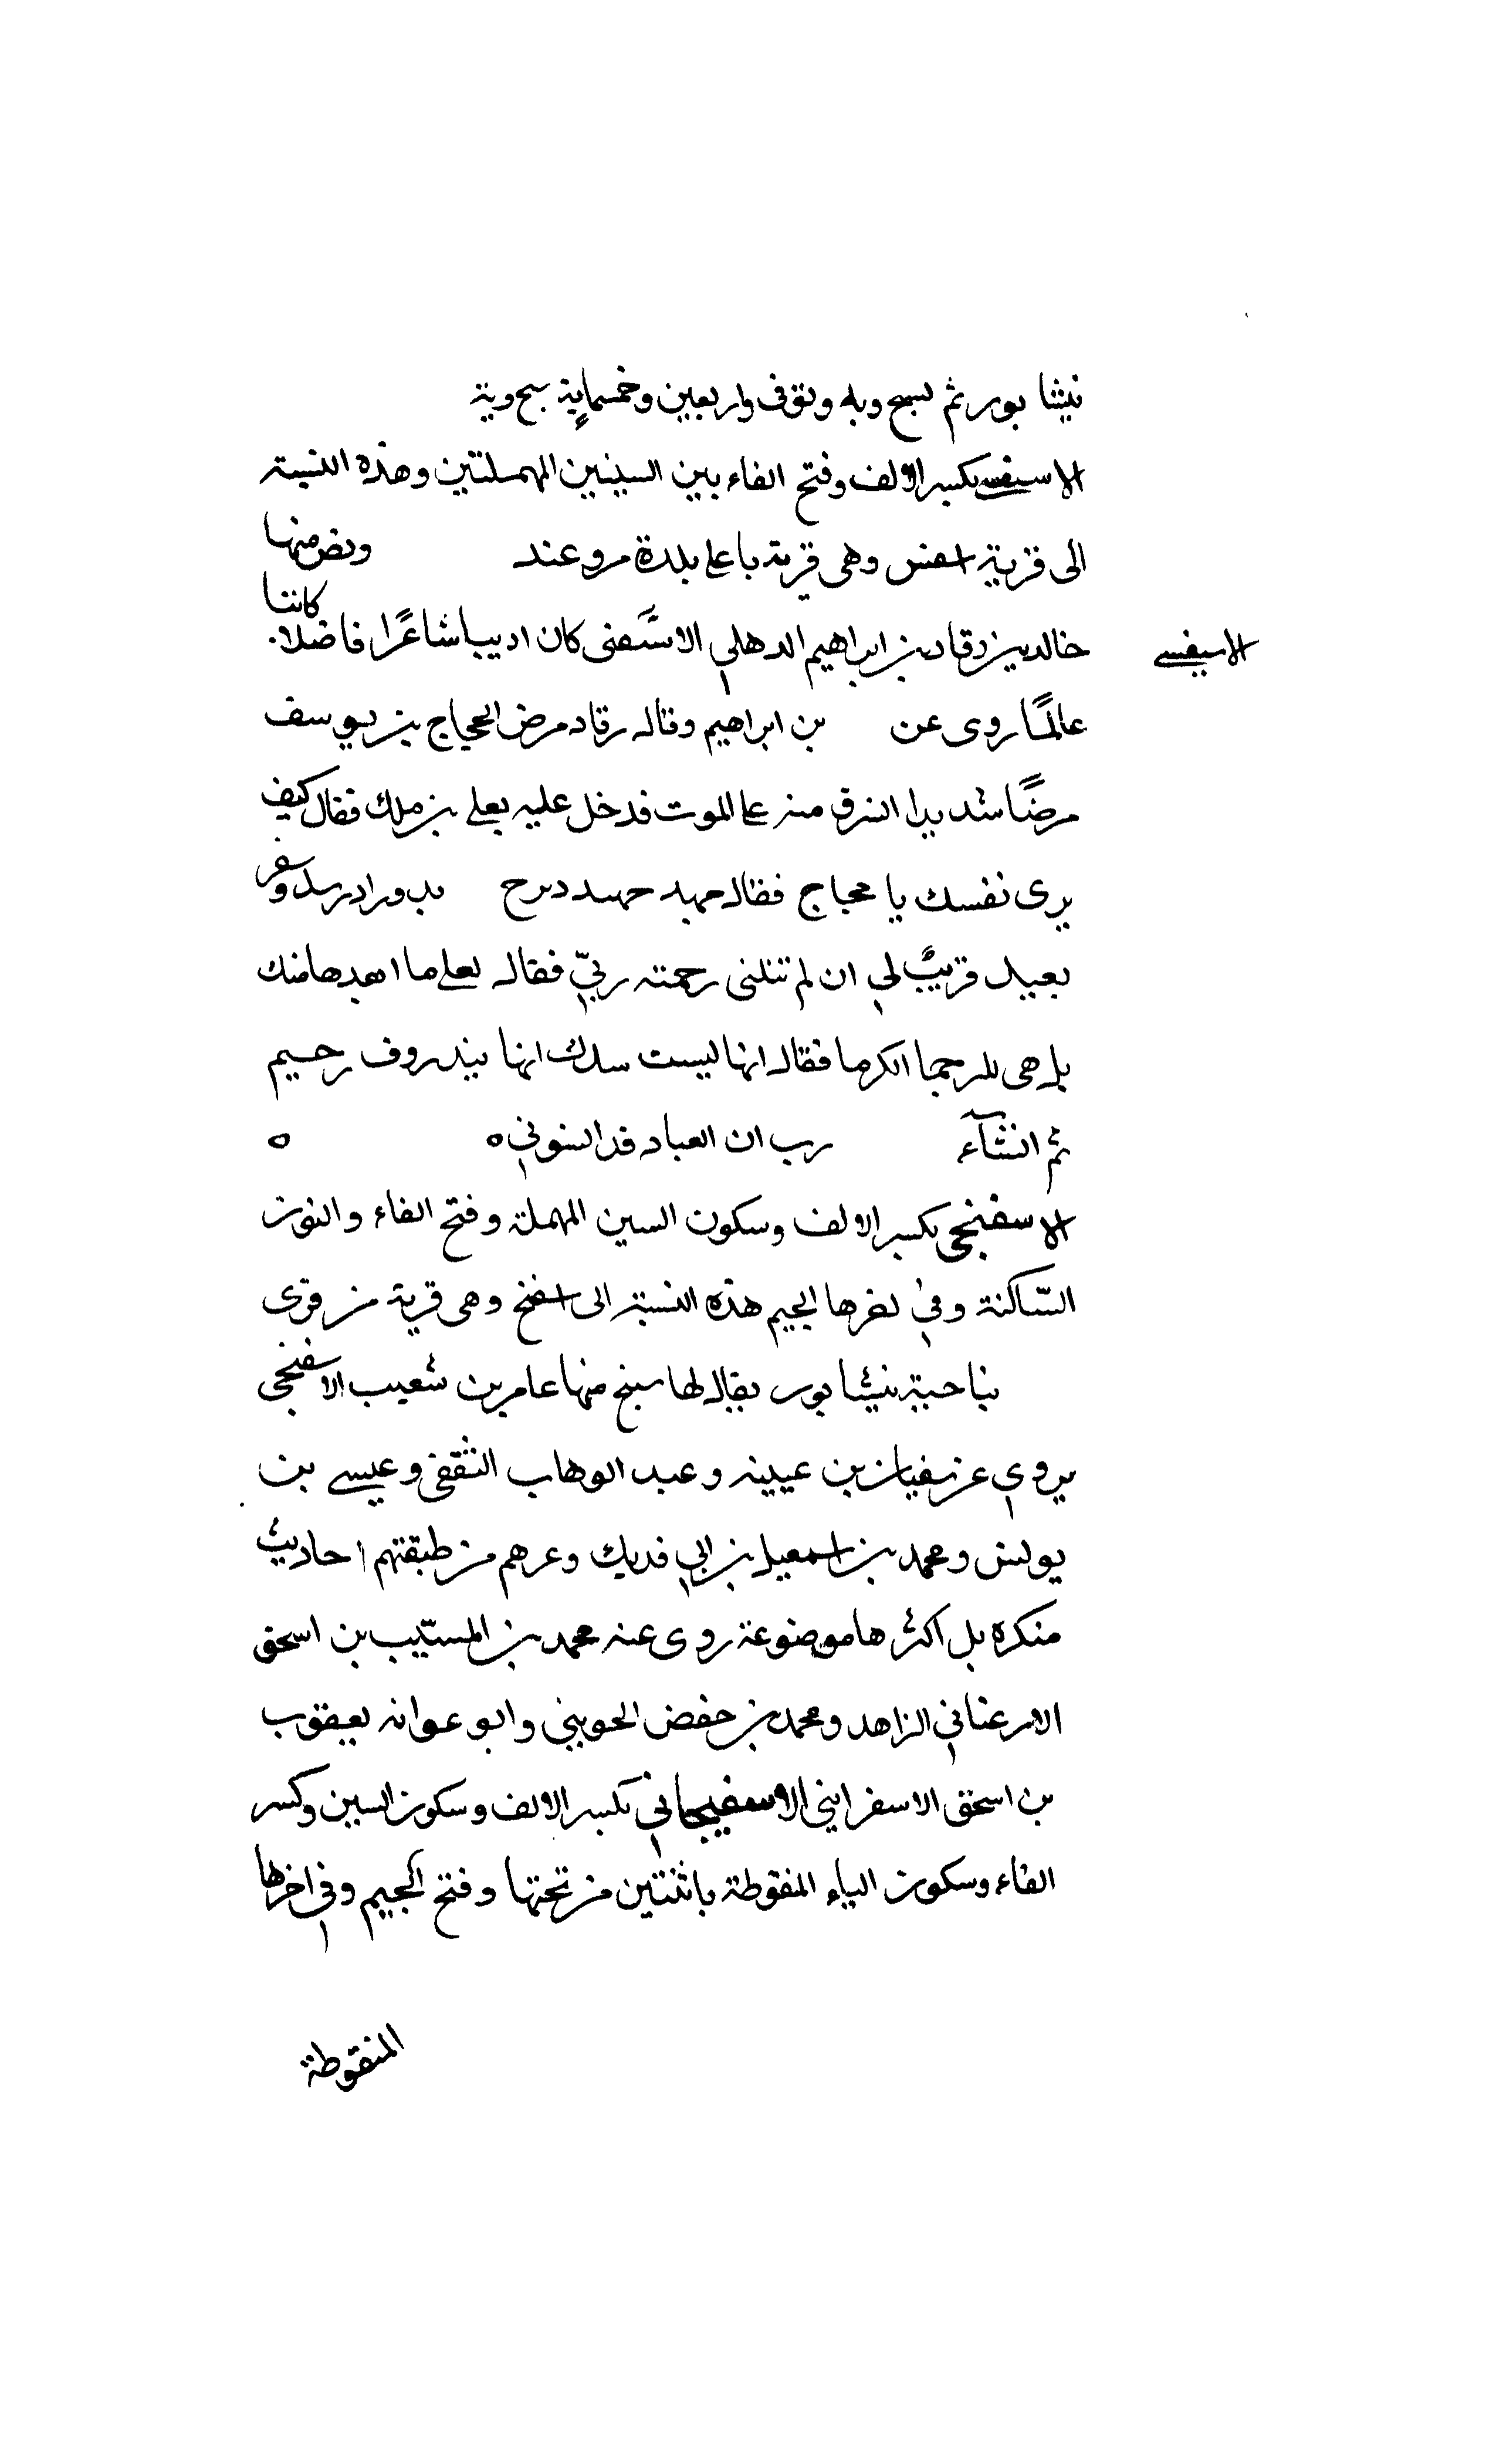 نيشا بور ثم بسبح وبه وتوفى واربعين وخمسماية بسبح وية
الاسفسى بكسر الالف وفتح الفاء بين السينين المهملتين وهذه النسبة
الى قرية اسفس وهى قرية باعلى بلدة مرو عند ومنها
كاتبا
خالد بن رقاد بن ابراهيم الذهلى الاسفسى كان اديبا شاعرا فاضلا
الاسفسى
عالما روى عن بن ابراهيم وقال رقاد مرض الحجاج بن يوسف
مرضا شديدا اشرف منه على الموت فدخل عليه يعلى بن ملك فقال كيف
يرى نفسك يا حجاج فقال جهد وسفر
بعيد قريب لى ان لم تنلنى رحمة ربى فقال يعلى ما ابعدها منك
بل هى للرحما الكرما فقال انها ليست بيدك انها بيد روف رحيم
ثم انشاء رب ان العباد قد ايسونى ٥ ٥
الاسفنجى بكسر الالف وسكون السين المهملة وفتح الفاء والنون
السّاكنة وفى اخرها الجيم هذه النسبة الى اسفنج وهى قرية من قرى
بناحية نيشا بور يقال لها سبنج منها عامر بن شعيب الاسفنجى
يروى عن سفيان بن عيينه وعبد الوهاب الثقفى وعيسى بن
يونس ومحمد بن اسمعيل بن ابى فديك وغيرهم من طبقتهم احاديث
منكره بل اكثرها موضوعة روى عنه محمد بن المسيّب بن اسحق
الارغنانى الزاهد ومحمد بن حفص الجوينى وابو عوانه يعقوب
بن اسحق الاسفراينى الاسفيجانى بكسر الالف وسكون السين وكسر
الفاء وسكون الياء المنقوطة باثنتين من تحتها وفتح الجيم وفى اخرها
المنقوطة